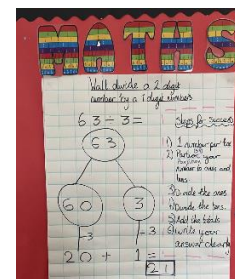 MATHS
Walt divide a 2 digit
number by a 1 digit number
63÷3=
63
60
3
÷3
÷3
20 + 1 =
21
Steps for Success
1) 1 number per box
2) Partion your
number in ones and
tens.
3) Divide the ones
4) Divide the tens.
5) Add the totals
6) Write your
answer clearly